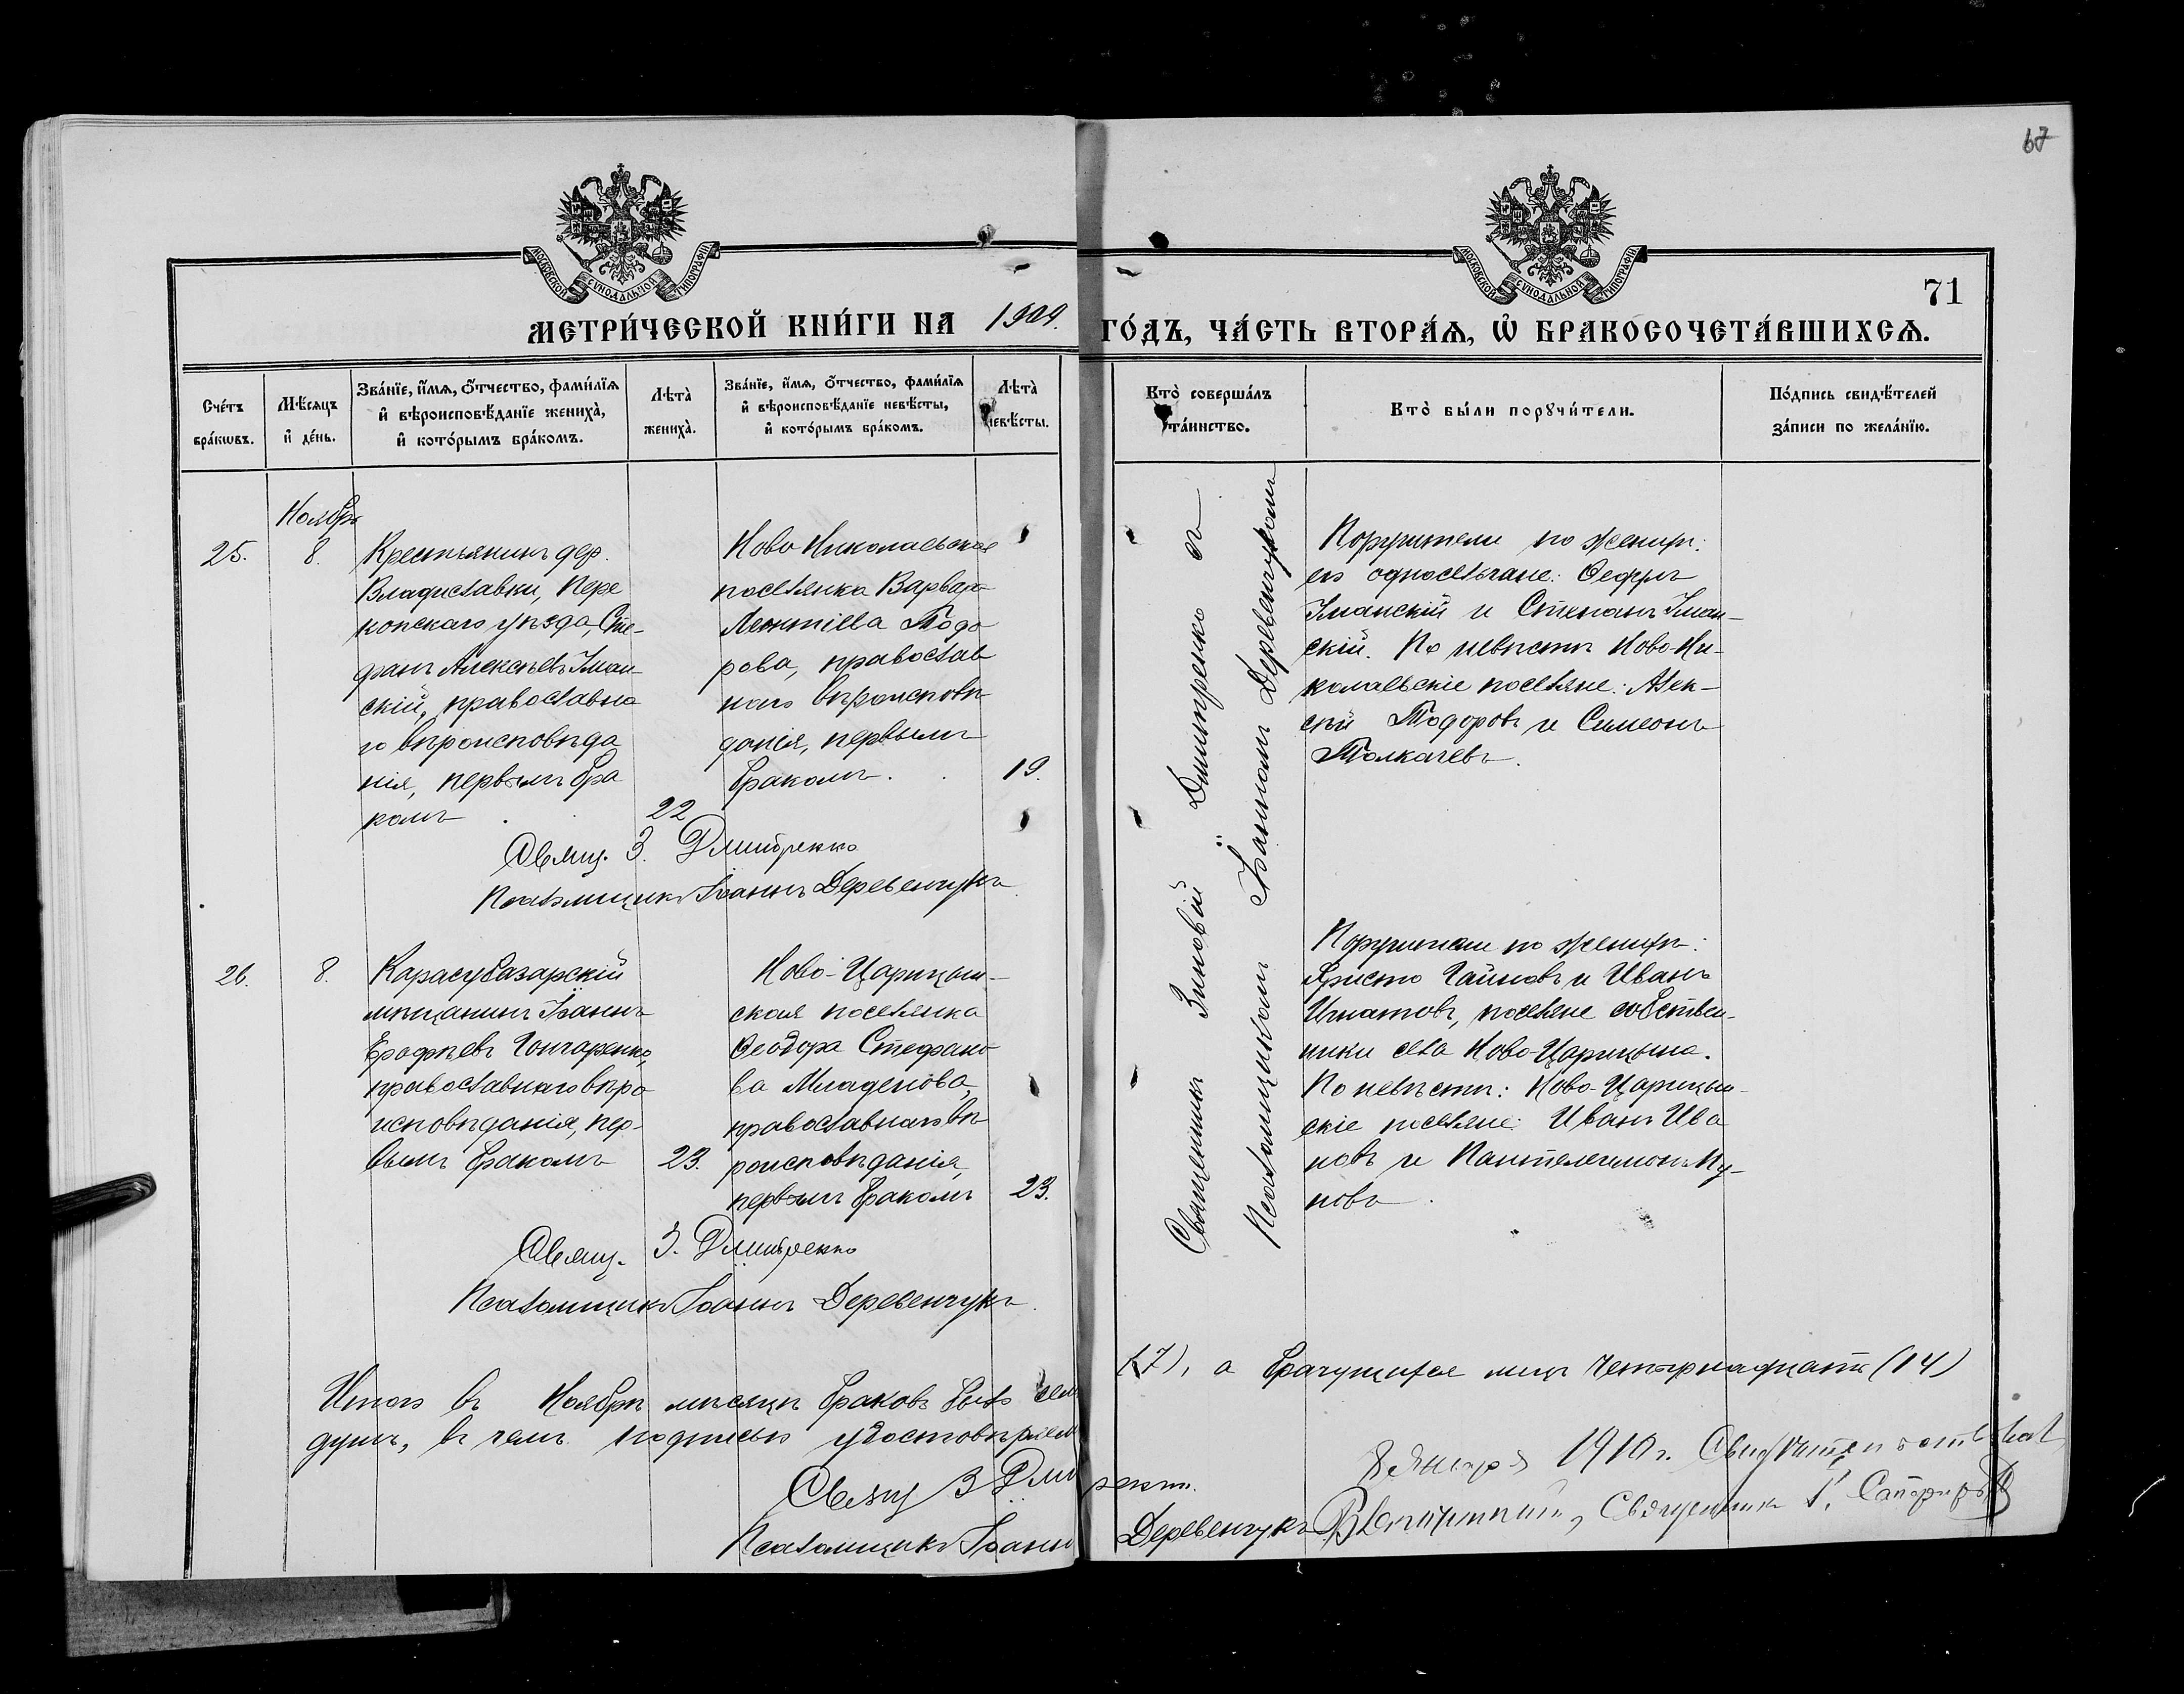 67
МОСКОВСКОЙ СУНОДАЛЬНОЙ ТИПОГРАФІИ
МОСКОВСКОЙ СУНОДАЛЬНОЙ ТИПОГРАФІИ
71
МЕТРИ́ЧЕСКОЙ КНИ́ГИ НА 1909. ГО́ДЪ, ЧА́СТЬ ВТОРА́Ѧ, Ѡ҆ БРАКОСОЧЕТА́ВШИХСѦ.
Сче́тъ
бра́кѡвъ.
Мѣ́сѧцъ
и҆ де́нь.
Зва́нїе, и҆́мѧ, ѻ҆́тчество, фами́лїѧ
и҆ вѣроисповѣ́данїе жениха̀,
и҆ кото́рымъ бра́комъ.
Лѣта̀
жениха̀.
Зва́нїе, и҆́мѧ, ѻ҆́тчество, фами́лїѧ
и҆ вѣроисповѣ́данїе невѣ́сты,
и҆ кото́рымъ бра́комъ.
Лѣта̀
невѣ́сты.
Кто̀ соверша́лъ
та́инство.
Кто̀ бы́ли порꙋчи́тели.
По́дпись свидѣ́телей
за́писи по жела́нїю.
Ноябрь
25.
8.
Крестьянинъ дер.
Владиславки, Пере
копскаго уѣзда, Сте-
фанъ Алексѣевъ Иман-
скій, православна
го вѣроисповѣда
нія, первымъ бра
комъ
22
Ново Николаевская
поселянка Варвара
Леонтіева Тодо
рова, православ
наго вѣроисповѣ
данія, первымъ
бракомъ.
19.
Священникъ Зиновій Дмитренко съ
Псаломщикомъ Іоанномъ Деревенчукомъ
Поручители по женихѣ:
его односельчане: Ѳедоръ
Иманскій и Степанъ Иман-
скій. По невѣстѣ Ново-Ни-
колаевскіе поселяне: Алек-
сѣй Тодоровъ и Симеонъ
Толкачевъ.
Свящ. З. Дмитренко
Псаломщикъ Іоаннъ Деревенчукъ
26.
8.
Карасубазарскій
мѣщанинъ Іоаннъ
Ерофѣевъ Гончаренко,
православнаго вѣро
исповѣданія, пер-
вымъ бракомъ
23.
Ново-Царицын-
ская поселянка
Ѳеодора Стефано
ва Младенова,
православнаго вѣ
роисповѣданія,
первымъ бракомъ
23.
Поручители по женихѣ:
Христо Чайновъ и Иванъ
Игнатовъ, поселяне собствен-
ники села Ново-Царицына.
По невѣстѣ: Ново-Царицын-
скіе поселяне: Иванъ Ива
новъ и Пантелеимонъ Пу-
новъ.
Свящ. З. Дмитренко
Псаломщикъ Іоаннъ Деревенчукъ.
Итого въ Ноябрѣ мѣсяцѣ браковъ было семь (7), а брачущихся лицъ четырнадцать (14)
душъ, въ чемъ подписью удостовѣряемъ
Свящ З Дмитренко
Псаломщикъ Іоаннъ Деревенчукъ
8 Января 1910 г. Свидѣтельствовал
Священник Г. Сапфиров